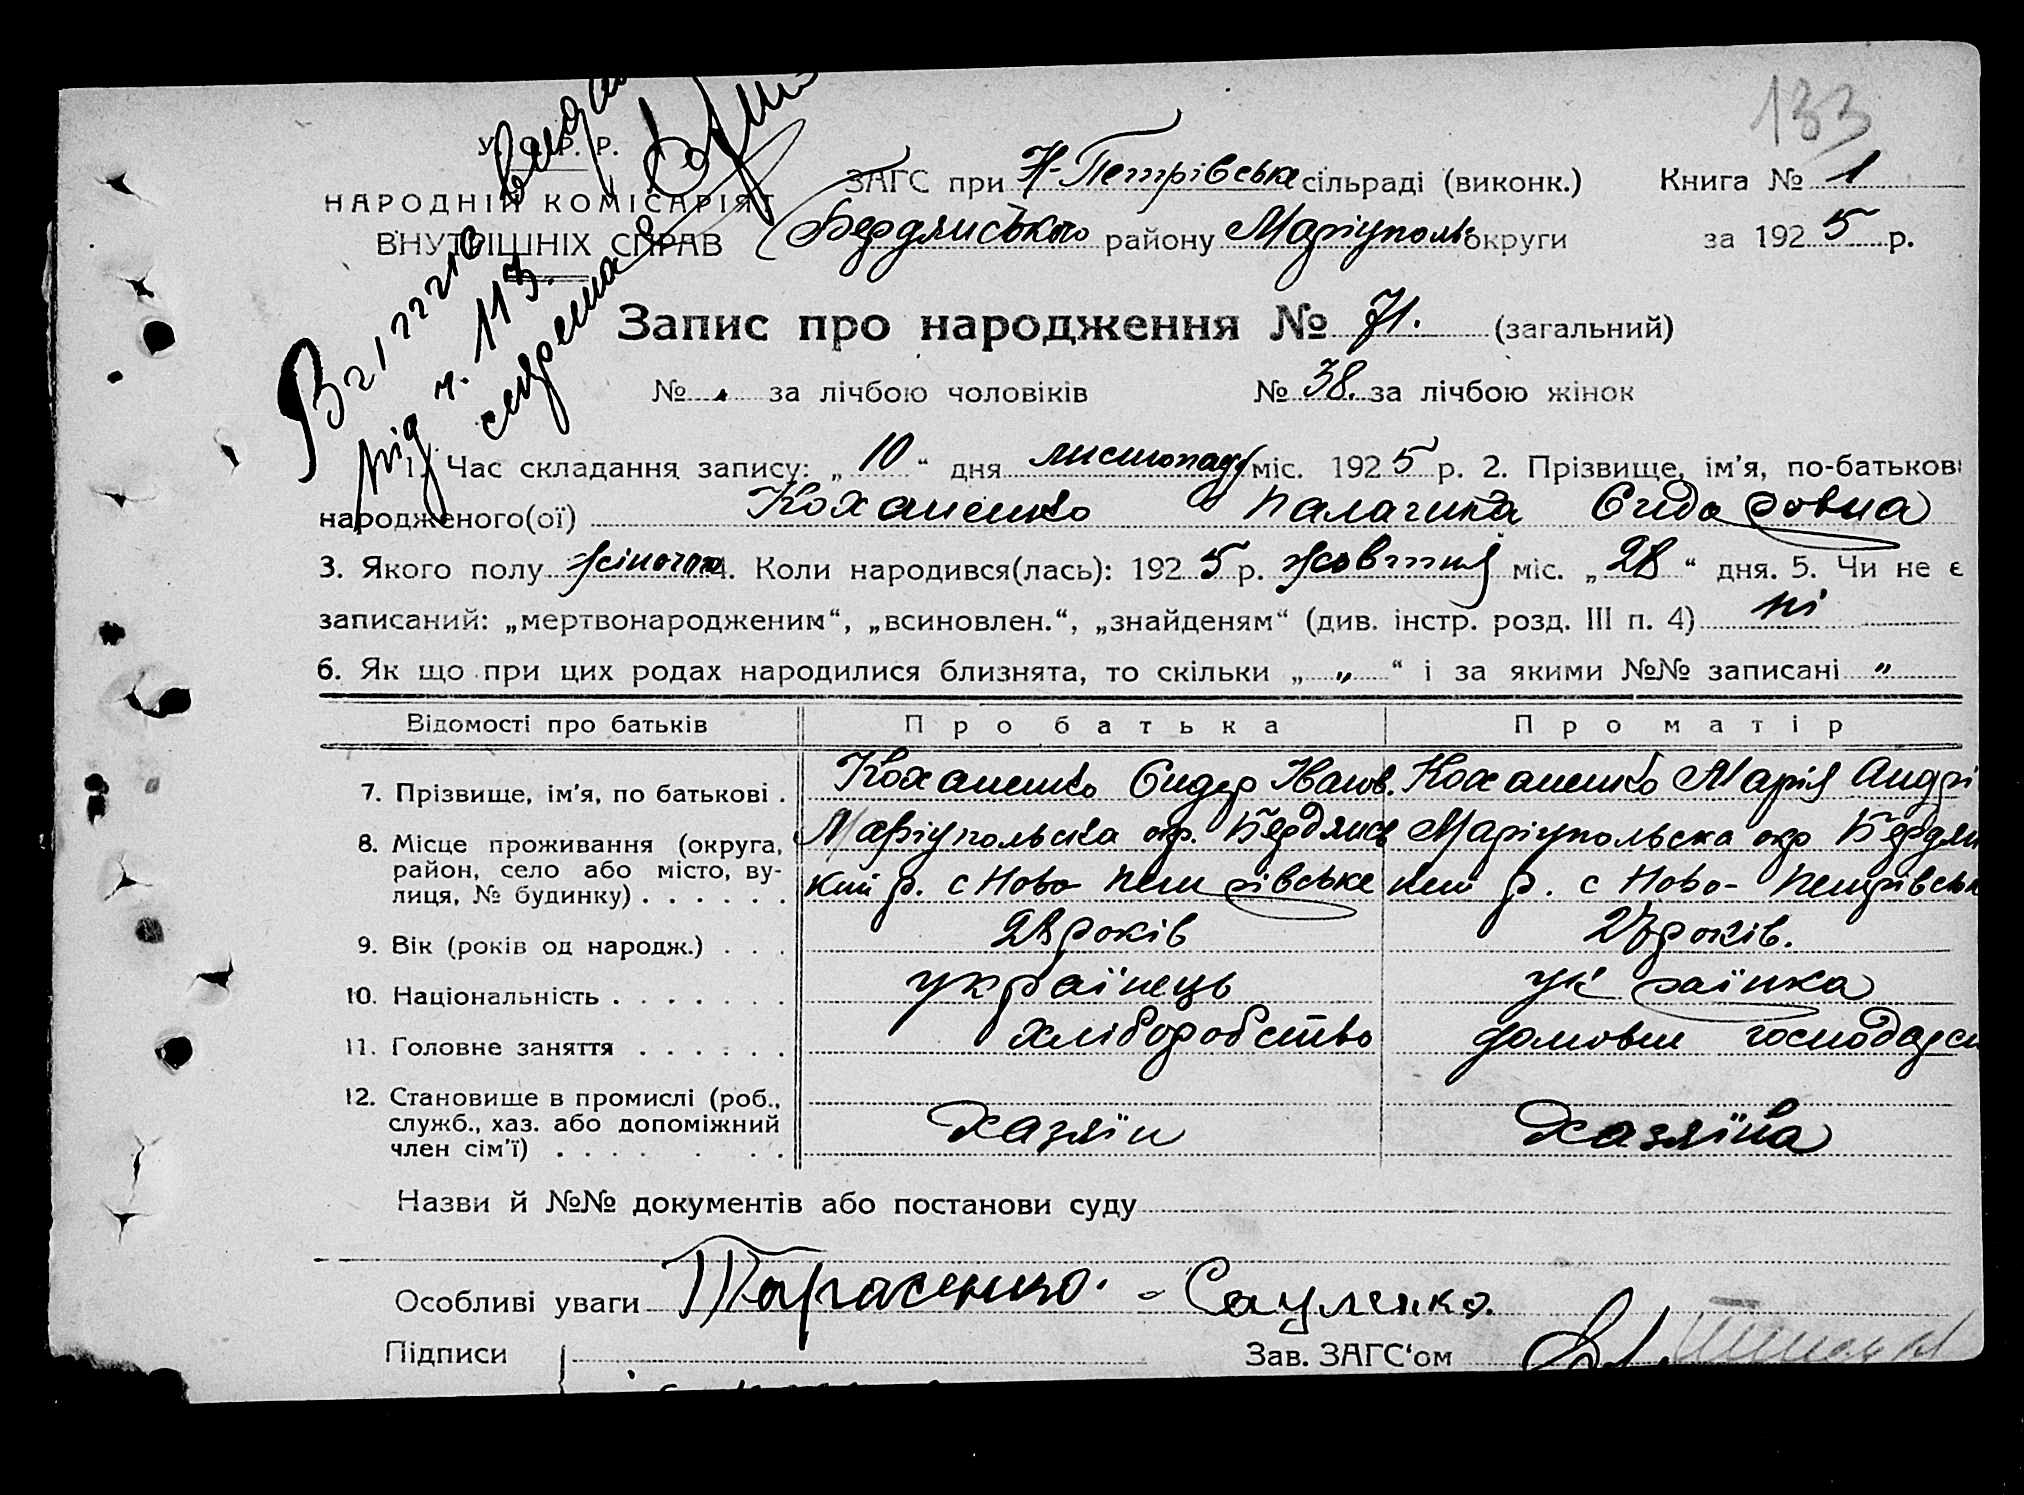 133
У. С. Р. Р.
НАРОДНІЙ КОМІСАРІЯТ
ВНУТРІШНІХ СПРАВ
ЗАГС при Н-Петрівське сільраді (виконк.) Книга № 1
Бердянського району Маріуполь округи за 1925 р.
Запис про народження № 71. (загальний)
№ „ за лічбою чоловіків № 38. за лічбою жінок
від ч. 113.
1. Час складання запису: „10“ дня листопаду міс. 1925 р. 2. Прізвище, ім'я, по-батькові
народженого(ої) Коханенко Палагина Сидоровна
3. Якого полу жіночого 4. Коли народився(лась): 1925 р. жовтня міс. „28“ дня. 5. Чи не є
записаний: „мертвонародженим“, „всиновлен.“, „знайденям“ (див. інстр. розд. III п. 4) ні
6. Як що при цих родах народилися близнята, то скільки „ „ “ і за якими №№ записані „
Відомості про батьків Про батька Про матір
7. Прізвище, ім'я, по батькові . Коханенко Сидор Іванов. Коханенко Марія Андрі
8. Місце проживання (округа, район, село або місто, вулиця, № будинку) . . . . . . Маріупольска окр. Бердянсь Маріупольска окр Бердян
кий р. с Ново-Петрівське кий р. с Ново-Петрівськ
9. Вік (років од народж.) . . . 28 років 27 років.
10. Національність . . . . . . . українець українка
11. Головне заняття . . . . . . хліборобство домовим господарст
12. Становище в промислі (роб., служб., хаз. або допоміжний член сім'ї) . . . . . . . хазяїн хазяїна
Назви й №№ документів або постанови суду
Особливі уваги Тарасенко. - Сауленко.
Підписи Зав. ЗАГС'ом